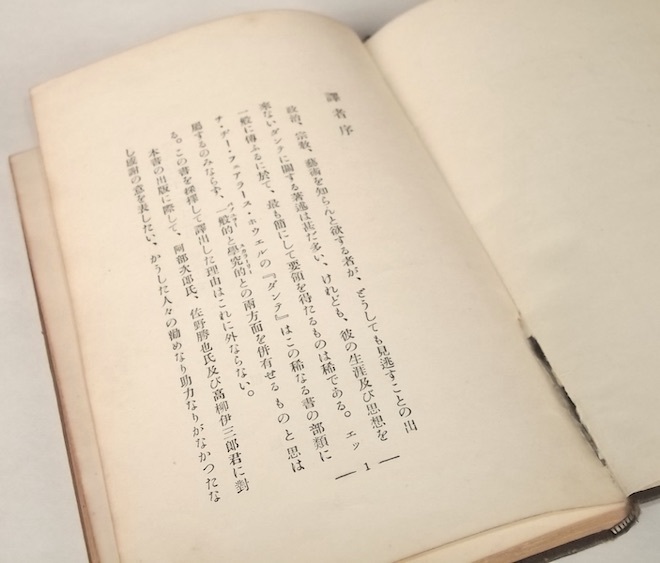 譯者序
政治、宗教、藝術を知らんと欲する者が、どうしても見逃すことの出
來ないダンテに關する著述は甚だ多い、けれども、彼の生涯及び思想を
一般に傳ふるに於て、最も簡にして要領を得たるものは稀である。エッ
チ・デー・フェアラース・ホウエルの『ダンテ』はこの稀なる書の部類に
屬するのみならず、一般的と學究的との兩方面を併有せるものと思は
る。この書を採擇して譯出した理由はこれに外ならない。
本書の出版に際して、阿部次郎氏、佐野勝也氏及び高柳伊三郎君に對
し感謝の意を表したい、かうした人々の勸めなり助力なりがなかつたな
1